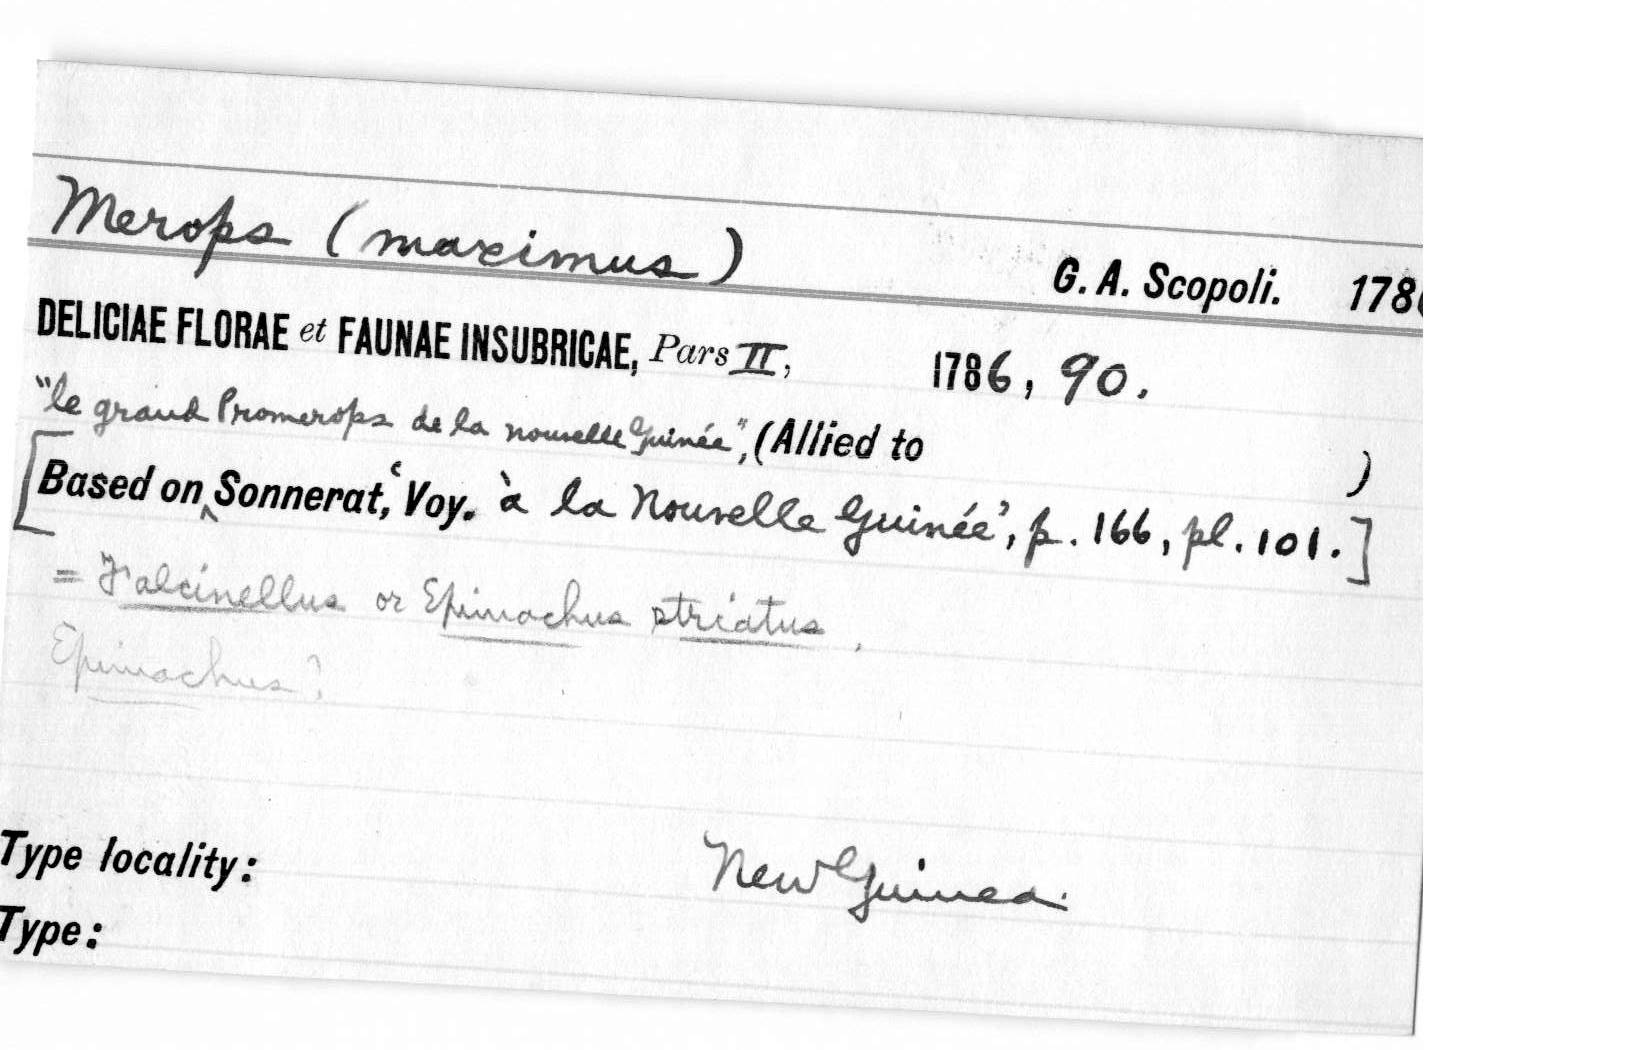 Merops (maximus)
G. A. Scopoli. 178
DELICIAE FLORAE et FAUNAE INSUBRICAE, Pars II, 1786, 90.
"le grand Promerops de la nouvelle Guinée", (Allied to )
[Based on ‸ Sonnerat, 'Voy. à la Nouvelle Guinée', p. 166, pl. 101.]
= Falcinellus or Epimachus striatus.
Epimachus?
Type locality: New Guinea.
Type: